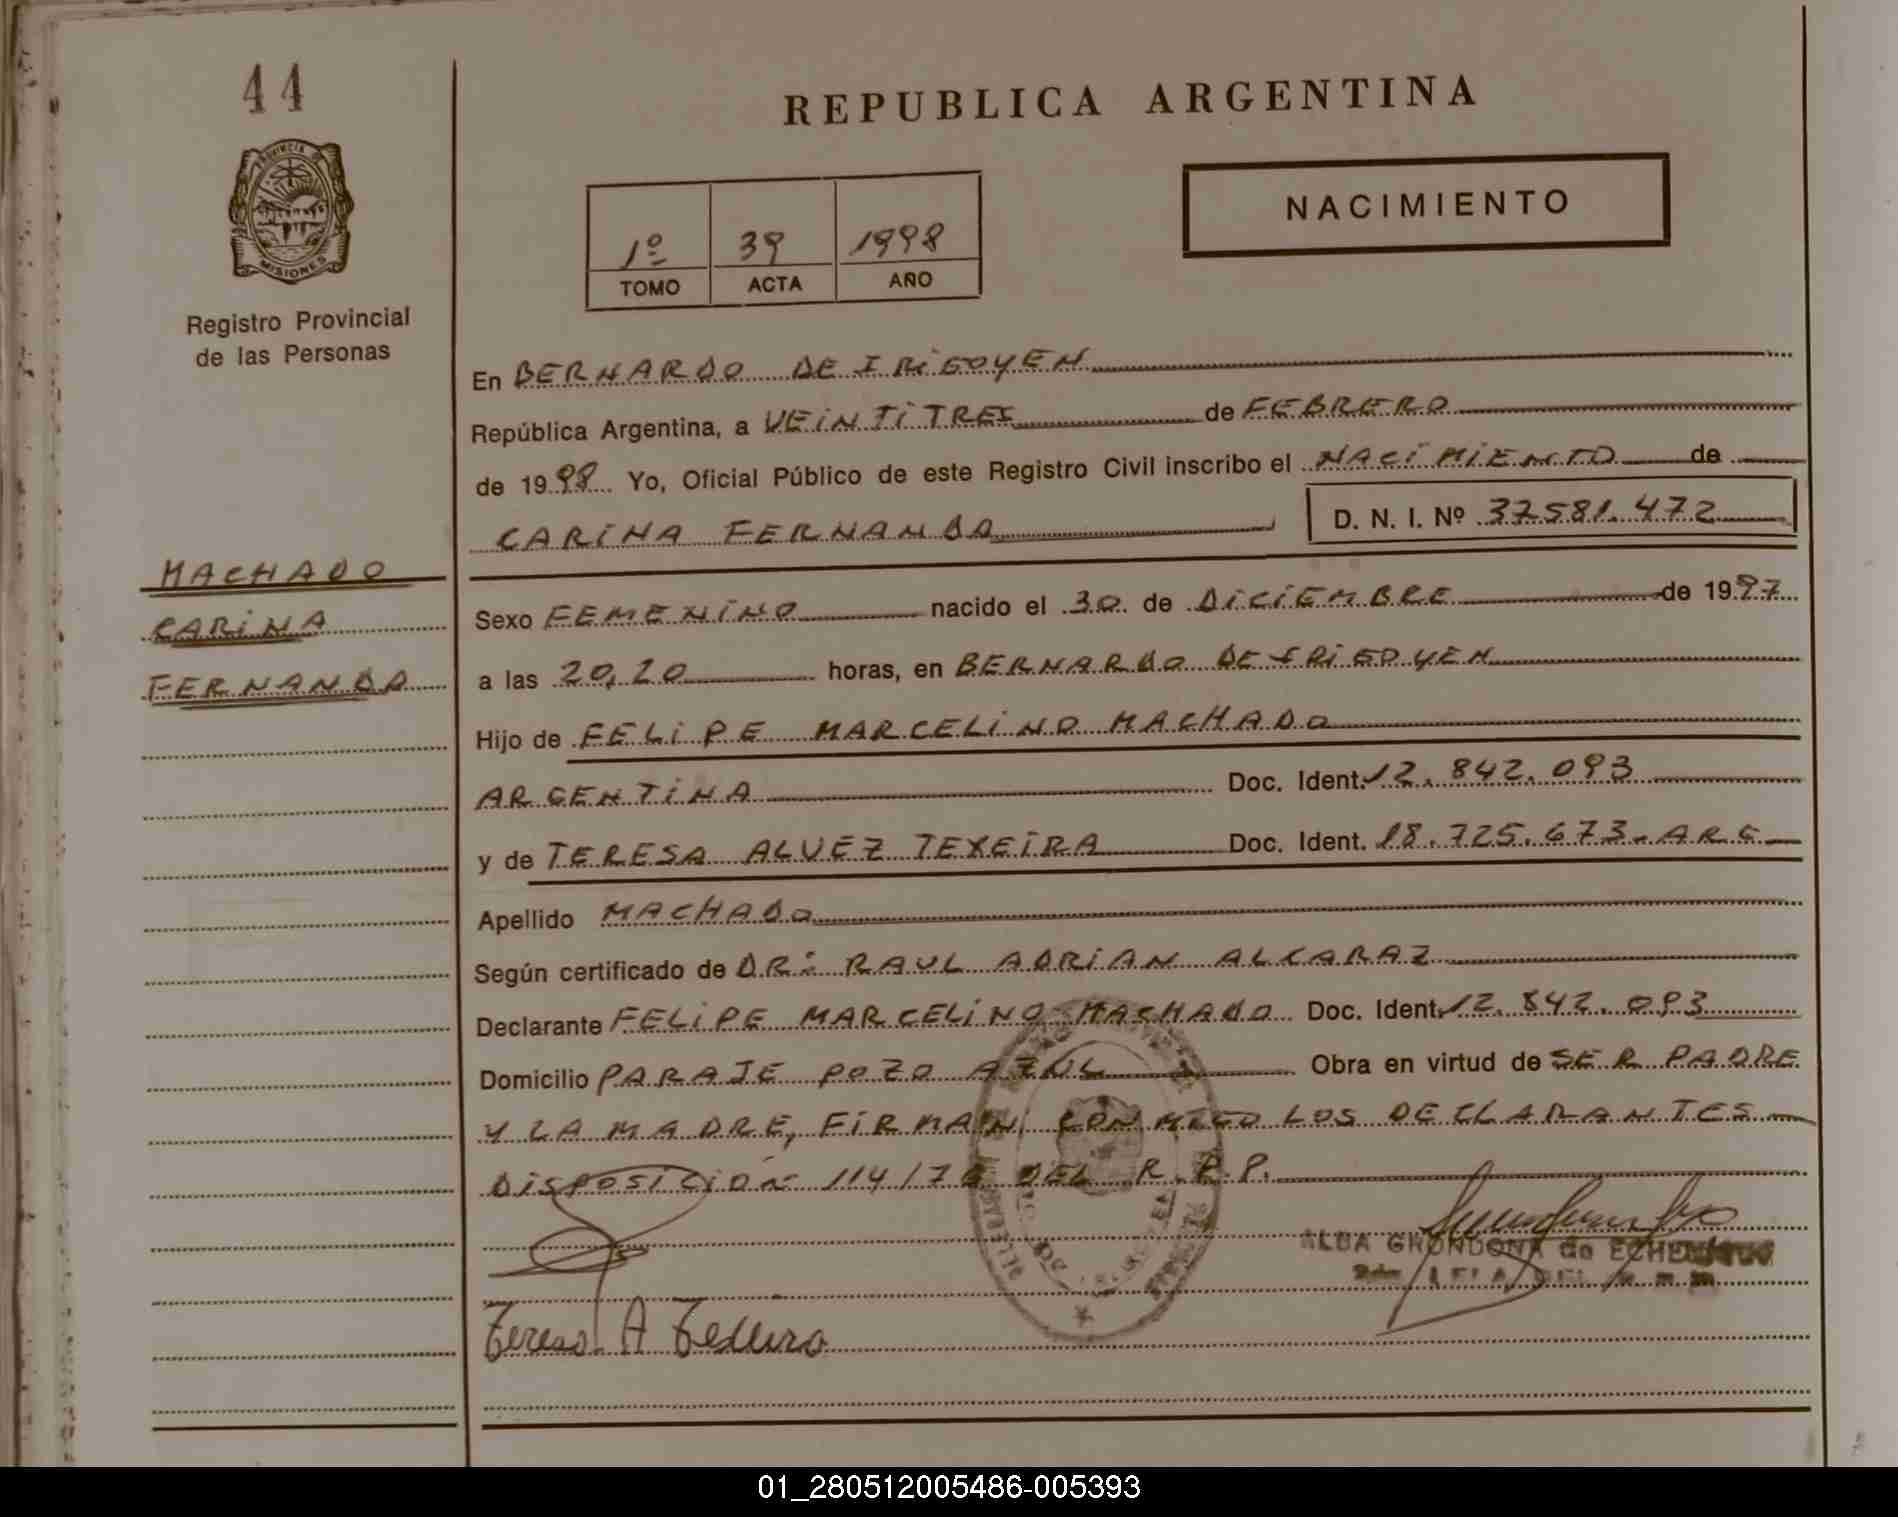 44
PROVINCIA DE
MISIONES
Registro Provincial
de las Personas
MACHADO
CARINA
FERNANDA
REPUBLICA ARGENTINA
1º 39 1998
TOMO ACTA AÑO
NACIMIENTO
En BERNARDO DE IRIGOYEN
República Argentina, a VEINTITRES de FEBRERO
de 1998 Yo, Oficial Público de este Registro Civil inscribo el NACIMIENTO de
CARINA FERNANDA D. N. I. Nº 37581.472
Sexo FEMENINO nacido el 30 de DICIEMBRE de 1997
a las 20,20 horas, en BERNARDO DE IRIGOYEN
Hijo de FELIPE MARCELINO MACHADO
ARGENTINA Doc. Ident. 12.842.093
y de TERESA ALVEZ TEXEIRA Doc. Ident. 18.725.673-ARG
Apellido MACHADO
Según certificado de DR: RAUL ADRIAN ALCARAZ
Declarante FELIPE MARCELINO MACHADO Doc. Ident. 12.842.093
Domicilio PARAJE POZO AZUL Obra en virtud de SER PADRE
Y LA MADRE, FIRMAN CONMIGO LOS DECLARANTES
DISPOSICIÓN 114/76 DEL R.P.P.
ALBA GRONDONA de
Teresa A Texeira
01_280512005486-005393